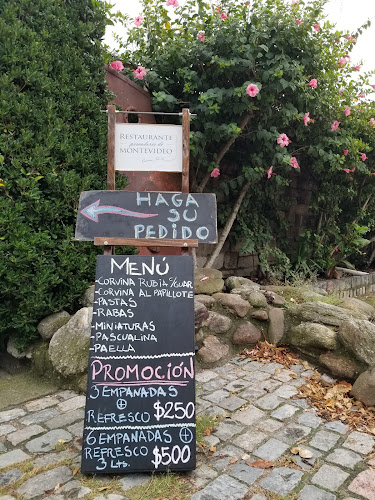 RESTAURANTE
MONTEVIDEO
HAGA
SU
PEDIDO
MENÚ
- CORVINA RUBIA C/GUAR
- CORVINA AL PAPILLOTE
- PASTAS
- RABAS
- MINIATURAS
- PASCUALINA
- PAELLA
PROMOCIÓN
3 EMPANADAS
+
REFRESCO $250
6 EMPANADAS +
REFRESCO
3 Lts. $500